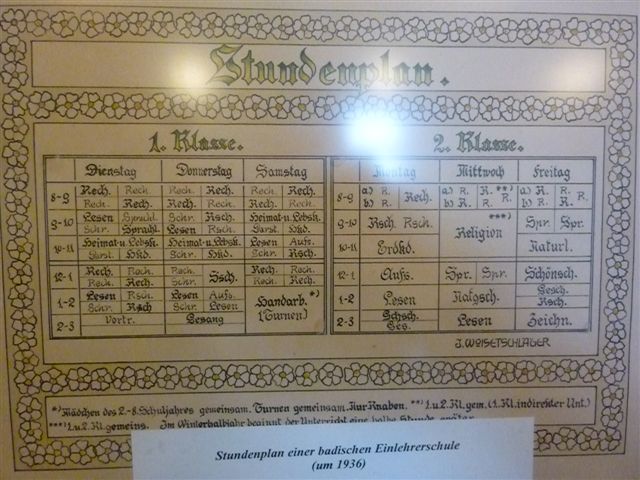 Stundenplan.
1. Klasse.
2. Klasse.
Dienstag Donnerstag Samstag
Montag Mittwoch Freitag
8-9 Rech. Rech. Rech. Rech. Rech. Rech.
Rech. Rech. Rech. Rech. Rech. Rech.
9-10 Lesen Sprachl. Schr. Rsch. Heimat-u.Lebsk.
Schr. Sprahl. Lesen Rsch. Garst. Hkd.
10-11 Heimat-u.Lebsk. Heimat-u.Lebsk. Lesen Aufs.
Garst. Hkd. Schr. Hkd. Schr. Rsch.
12-1 Rech. Rech. Rech. Rech. Rech.
Rech. Rech. Schr. Ssch. Rech. Rech.
1-2 Lesen Rsch. Lesen Aufs. Handarb. *)
Schr. Rsch Schr. Lesen (Turnen)
2-3 Vortr. Gesang
8-9 a) R. Rech. a) R. R. **) R. a) R. R. R.
b) R. b) R. R. b) R. R.
9-10 Rsch. Rsch. Religion ***) Spr. Spr.
10-11 Erdkd. Naturl.
12-1 Aufs. Spr. Spr. Schönsch.
1-2 Lesen Natgsch. Gesch.
Rsch.
2-3 Schsch. Lesen Zeichn.
Ges.
J. WOISETSCHLÄGER
*) Mädchen des 2.-8. Schuljahres gemeinsam. Turnen gemeinsam. Nur Knaben. **) 1.u.2. Kl. gem. (1. Kl. indirekter Unt.)
***) 1.u.2. Kl. gemeins. Im Winterhalbjahr beginnt der Unterricht eine halbe Stunde später
Stundenplan einer badischen Einlehrerschule
(um 1936)